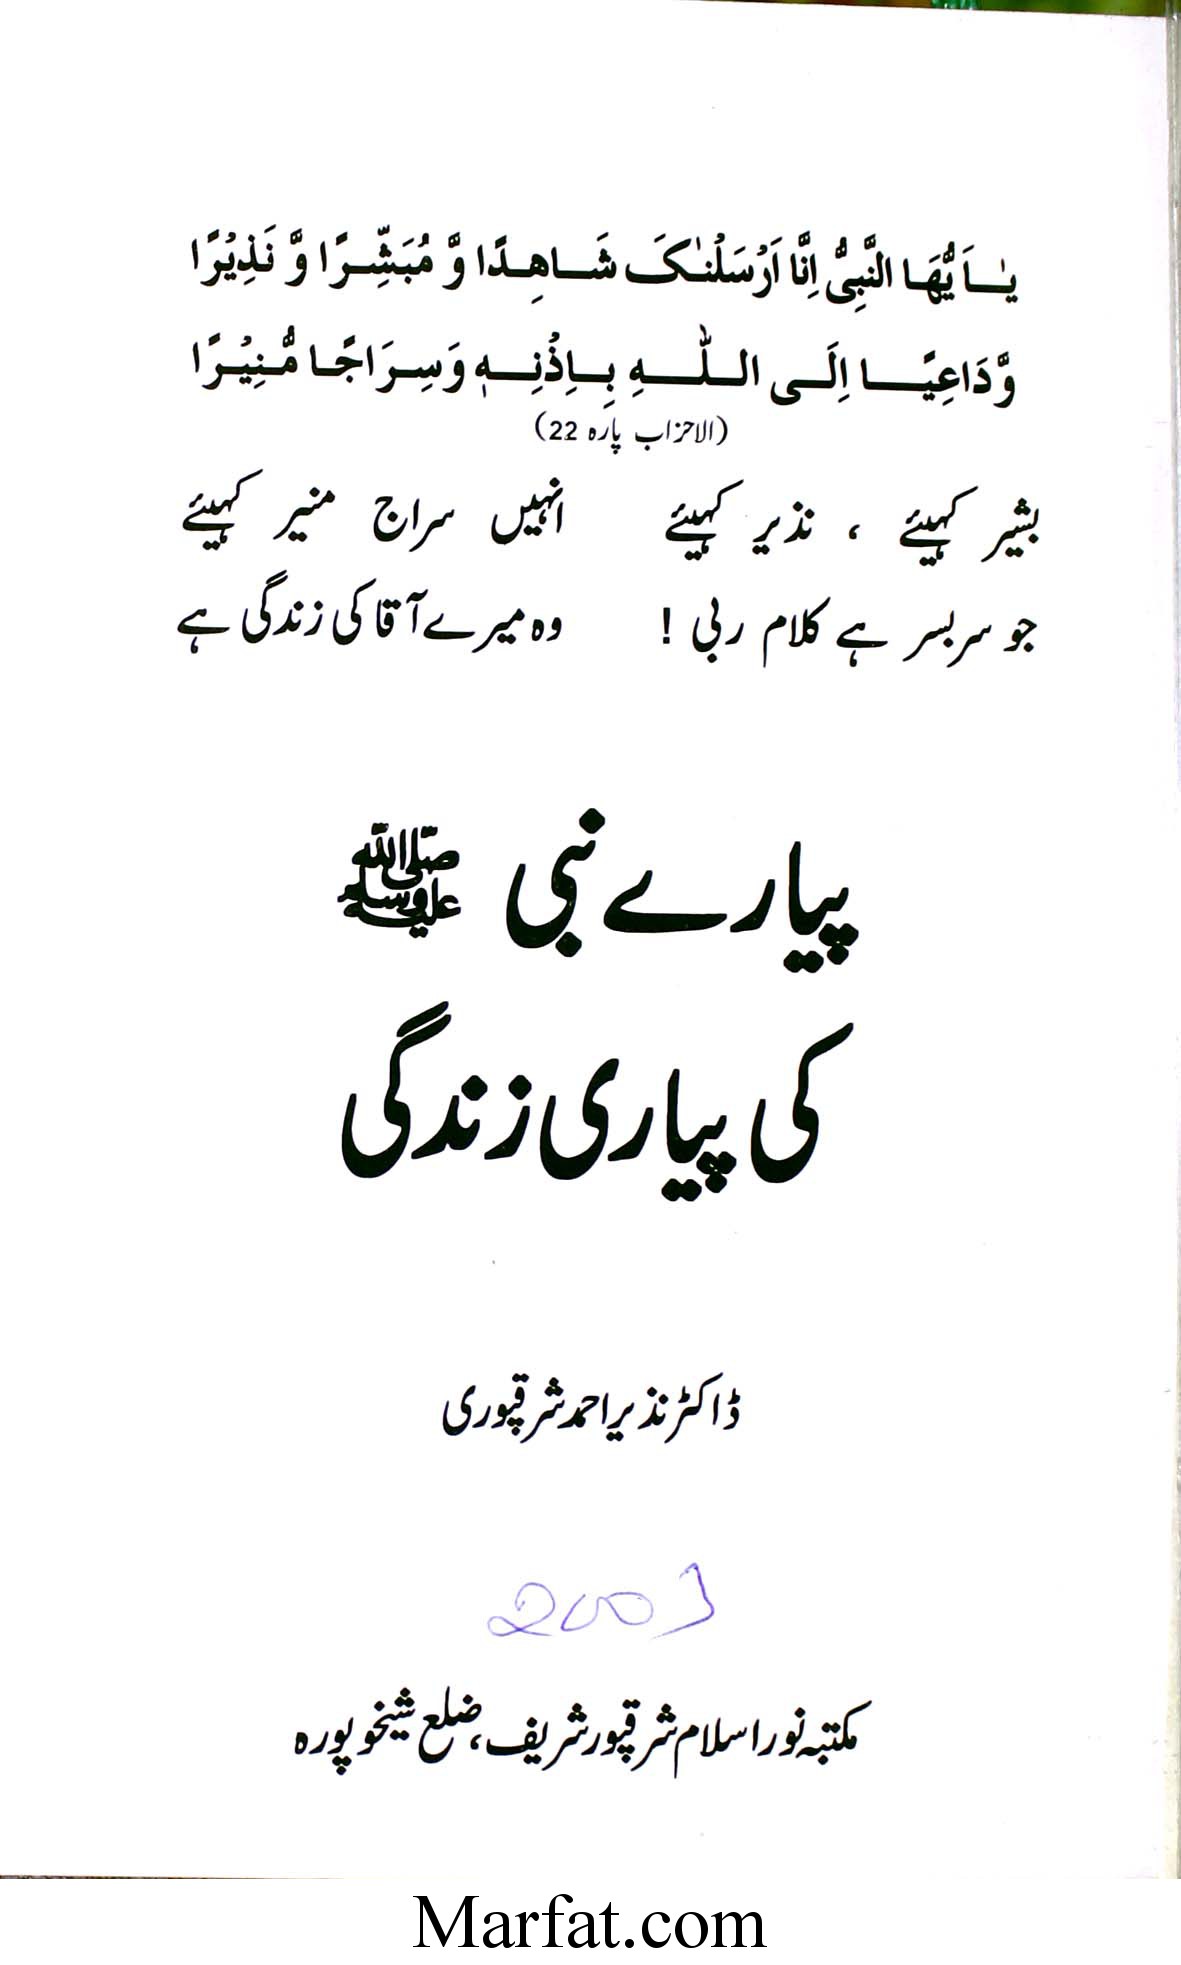 یٰۤاَیُّهَا النَّبِیُّ اِنَّاۤ اَرْسَلْنٰکَ شَاهِدًا وَّ مُبَشِّرًا وَّ نَذِیْرًا
وَّدَاعِیًا اِلَی اللّٰهِ بِاِذْنِهٖ وَسِرَاجًا مُّنِیْرًا
(الاحزاب پارہ 22)
بشیر کہیئے ، نذیر کہیئے انہیں سراج منیر کہیئے
جو سربسر ہے کلام ربی ! وہ میرے آقا کی زندگی ہے
پیارے نبی ﷺ
کی پیاری زندگی
ڈاکٹر نذیر احمد شرقپوری
2003
مکتبہ نور اسلام شرقپور شریف، ضلع شیخوپورہ
Marfat.com